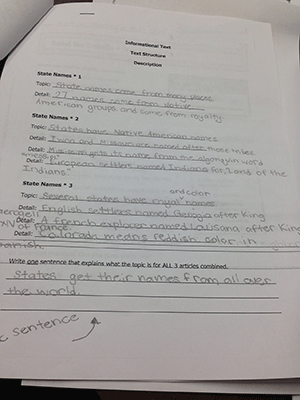 Informational Text
Text Structure
Description
State Names * 1
Topic: State names come from many places
Detail: 27 names come from Native
American groups and some from royalty.
State Names * 2
Topic: States have Native American names
Detail: Iowa and Missouri are named after those tribes
Detail: Mississippi gets its name from the algonqyin word
"messipi"
Detail: European settlers named Indiana for "Land of the
Indians".
State Names * 3
and color
Topic: Several states have royal names
Detail: English settlers named Georgia after King
Detail: A French explorer named Louisiana after King
XIV of France.
Detail: Colorado means reddish color in
Write one sentence that explains what the topic is for ALL 3 articles combined.
States get their names from all over
the world.
c sentence